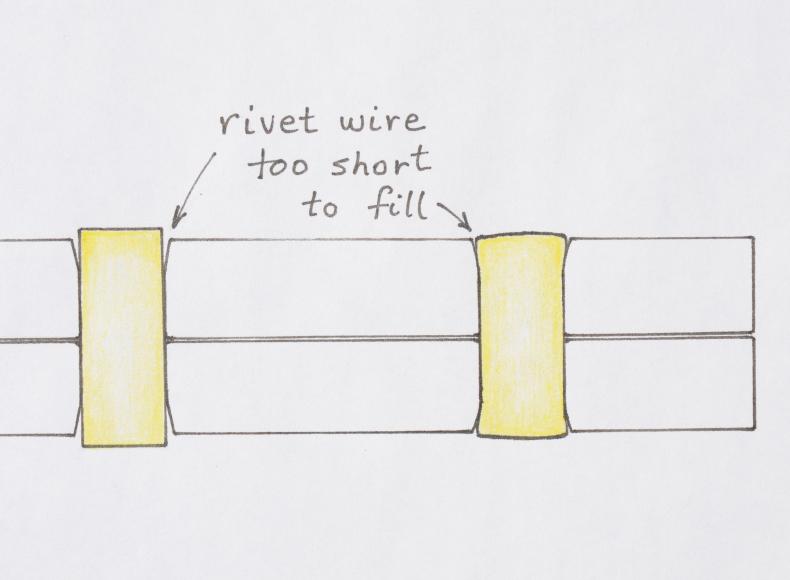 rivet wire
too short
to fill